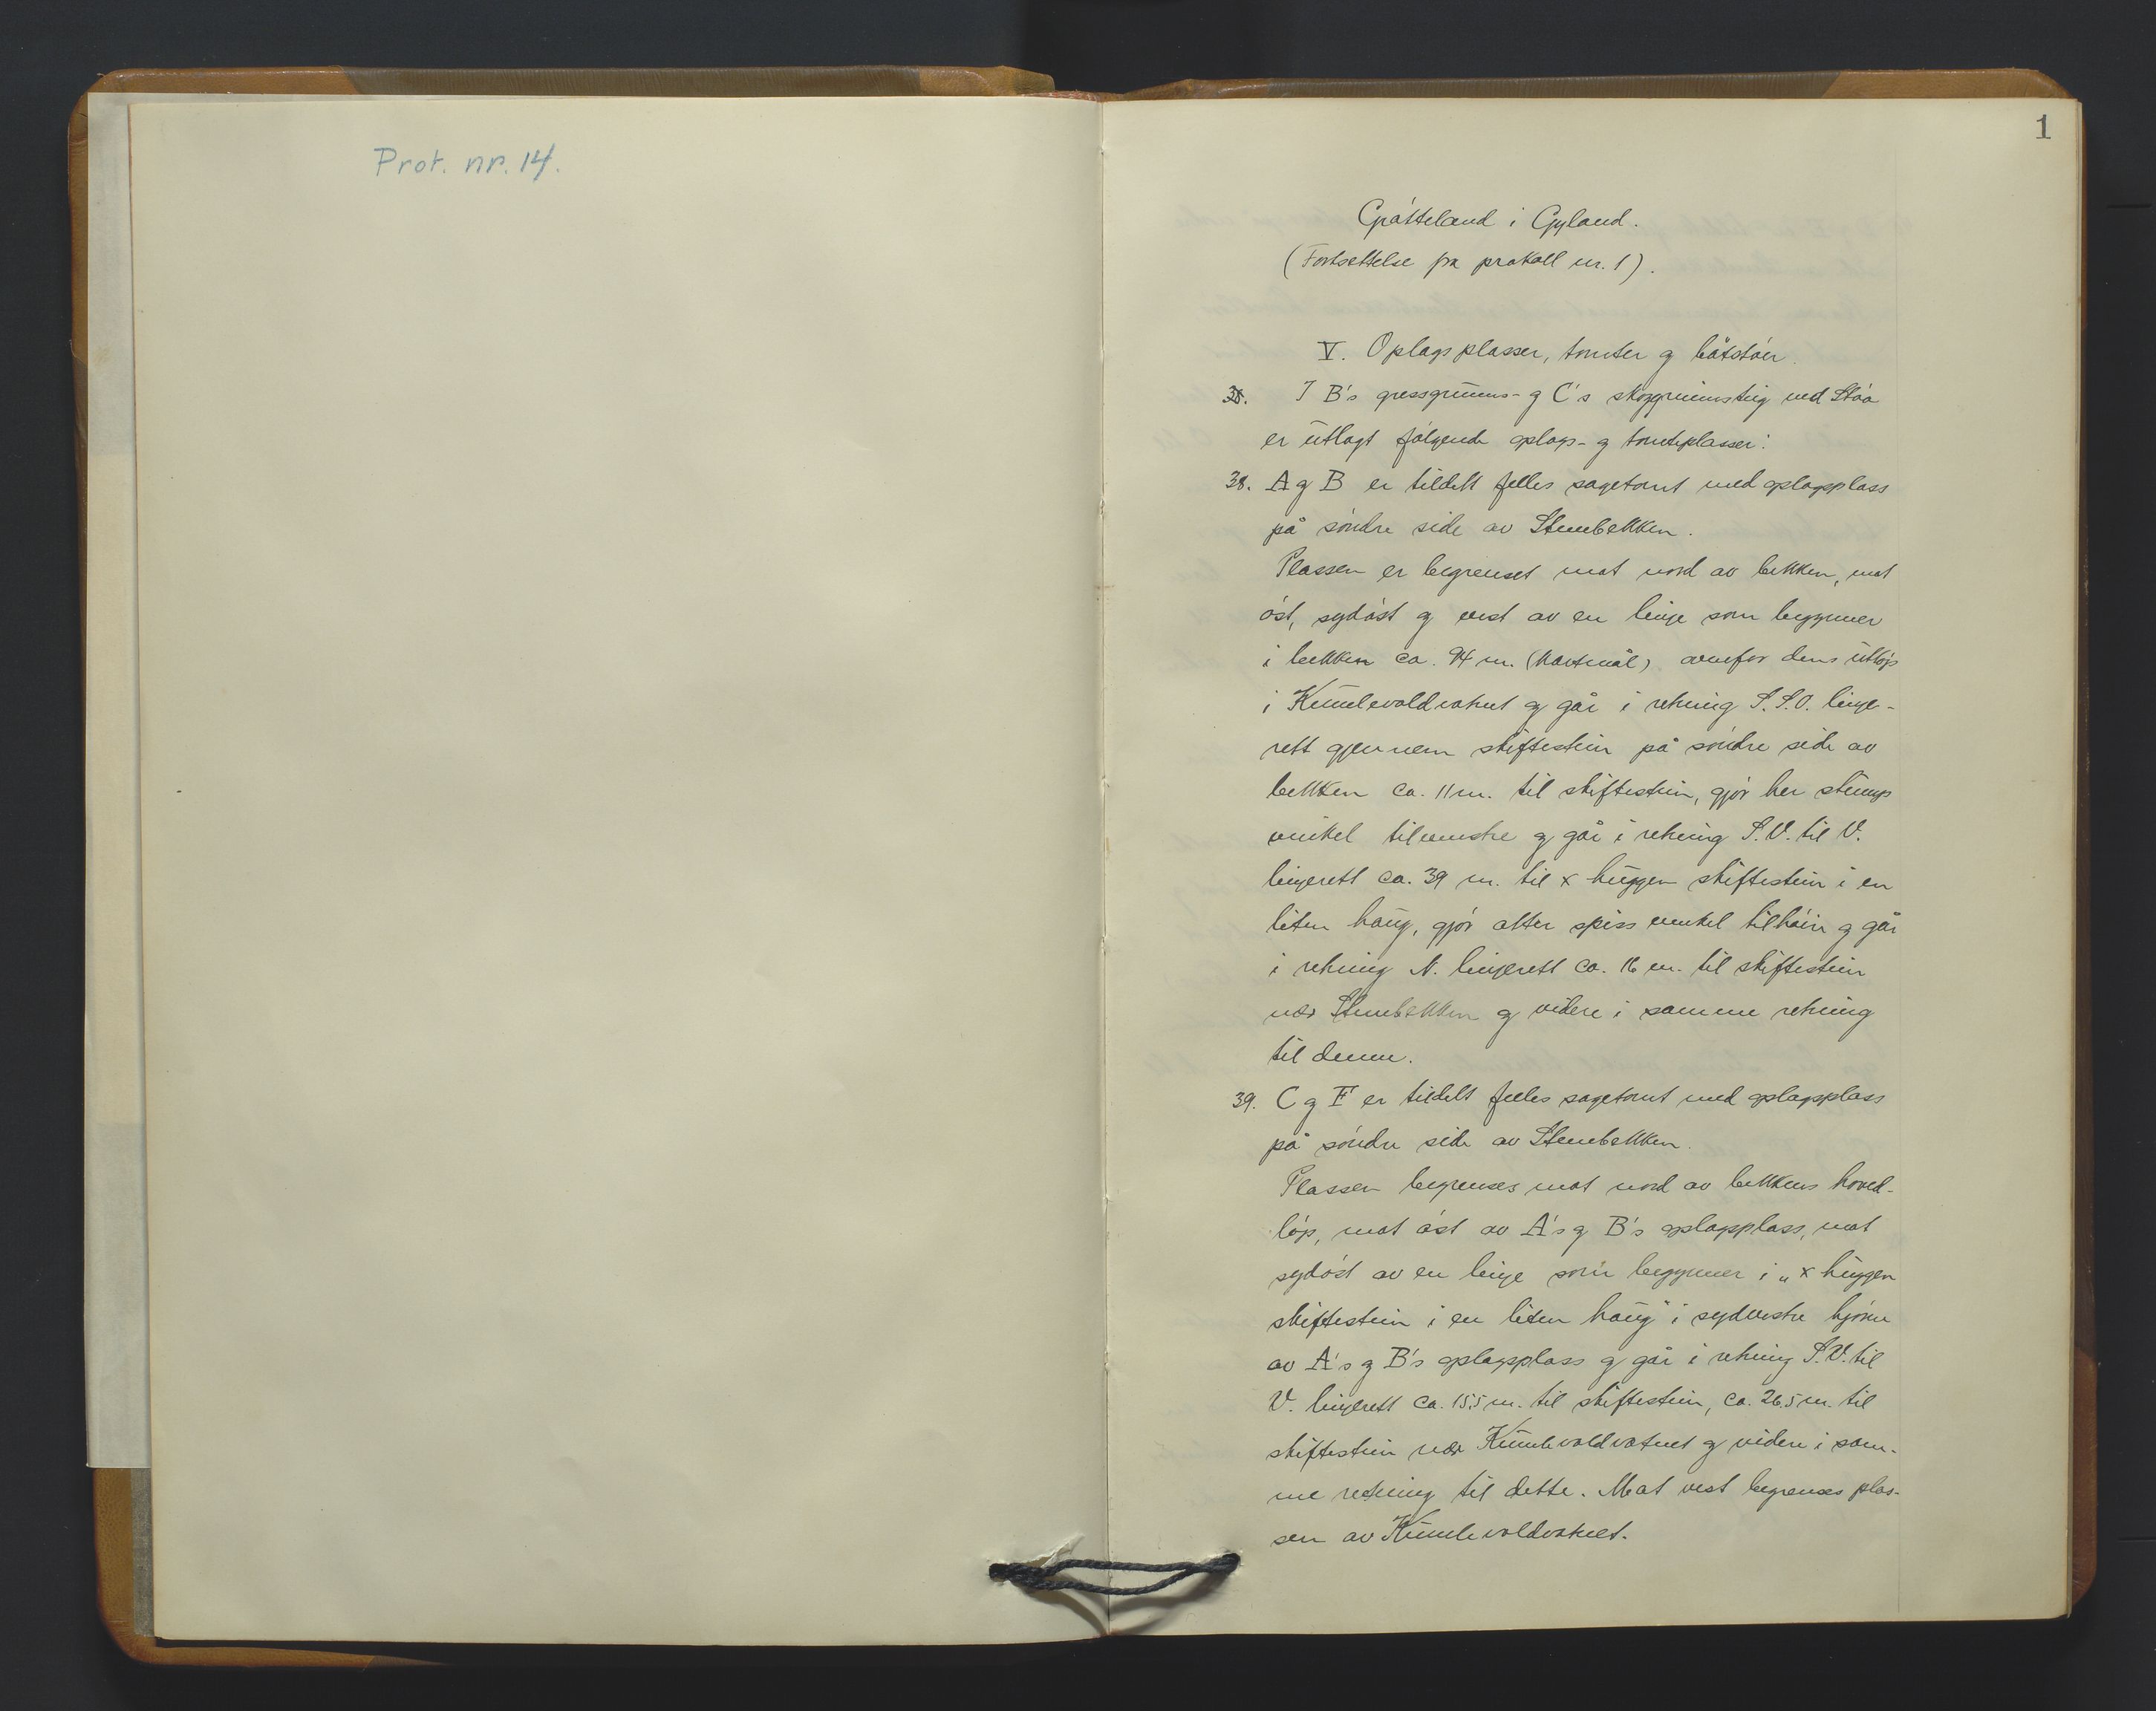 Prot. nr. 14.
1
Gråtteland i Gyland.
(Fortsettelse fra protokoll nr. 1).
V. Oplagsplasser, tomter og båtstöer.
38. I B's gressgrunns- og C's skoggrunnsteig ved Stöa
er utlagt følgende oplags- og tomteplasser:
38. A og B er tildelt felles sagetomt med oplagsplass
på söndre side av Stembekken.
Plassen er begrenset mot nord av bekken, mot
öst, sydöst og vest av en linje som begynner
i bekken ca. 94 m. (kartmål) ovenfor dens utlöp
i Kumlevoldvatnet og går i retning S.S.O. linje-
rett gjennem skiftestein på söndre side av
bekken ca. 11 m. til skiftestein, gjör her stump
vinkel tilvenstre og går i retning S.V. til V.
linjerett ca. 39 m. til x huggen skiftestein i en
liten haug, gjör atter spiss vinkel tilhöire og går
i retning N. linjerett ca. 16 m. til skiftestein
nær Stembekken og videre i samme retning
til denne.
39. C og F er tildelt felles sagetomt med oplagsplass
på söndre side av Stembekken.
Plassen begrenses mot nord av bekkens hoved-
löp, mot öst av A's og B's oplagsplass, mot
sydöst av en linje som begynner i „x huggen
skiftestein i en liten haug" i sydvestre hjörne
av A's og B's oplagsplass og går i retning S.V. til
V. linjerett ca. 15,5 m. til skiftestein, ca. 26,5 m. til
skiftestein nær Kumlevoldvatnet og videre i sam-
me retning til dette. Mot vest begrenses plas-
sen av Kumlevoldvatnet.